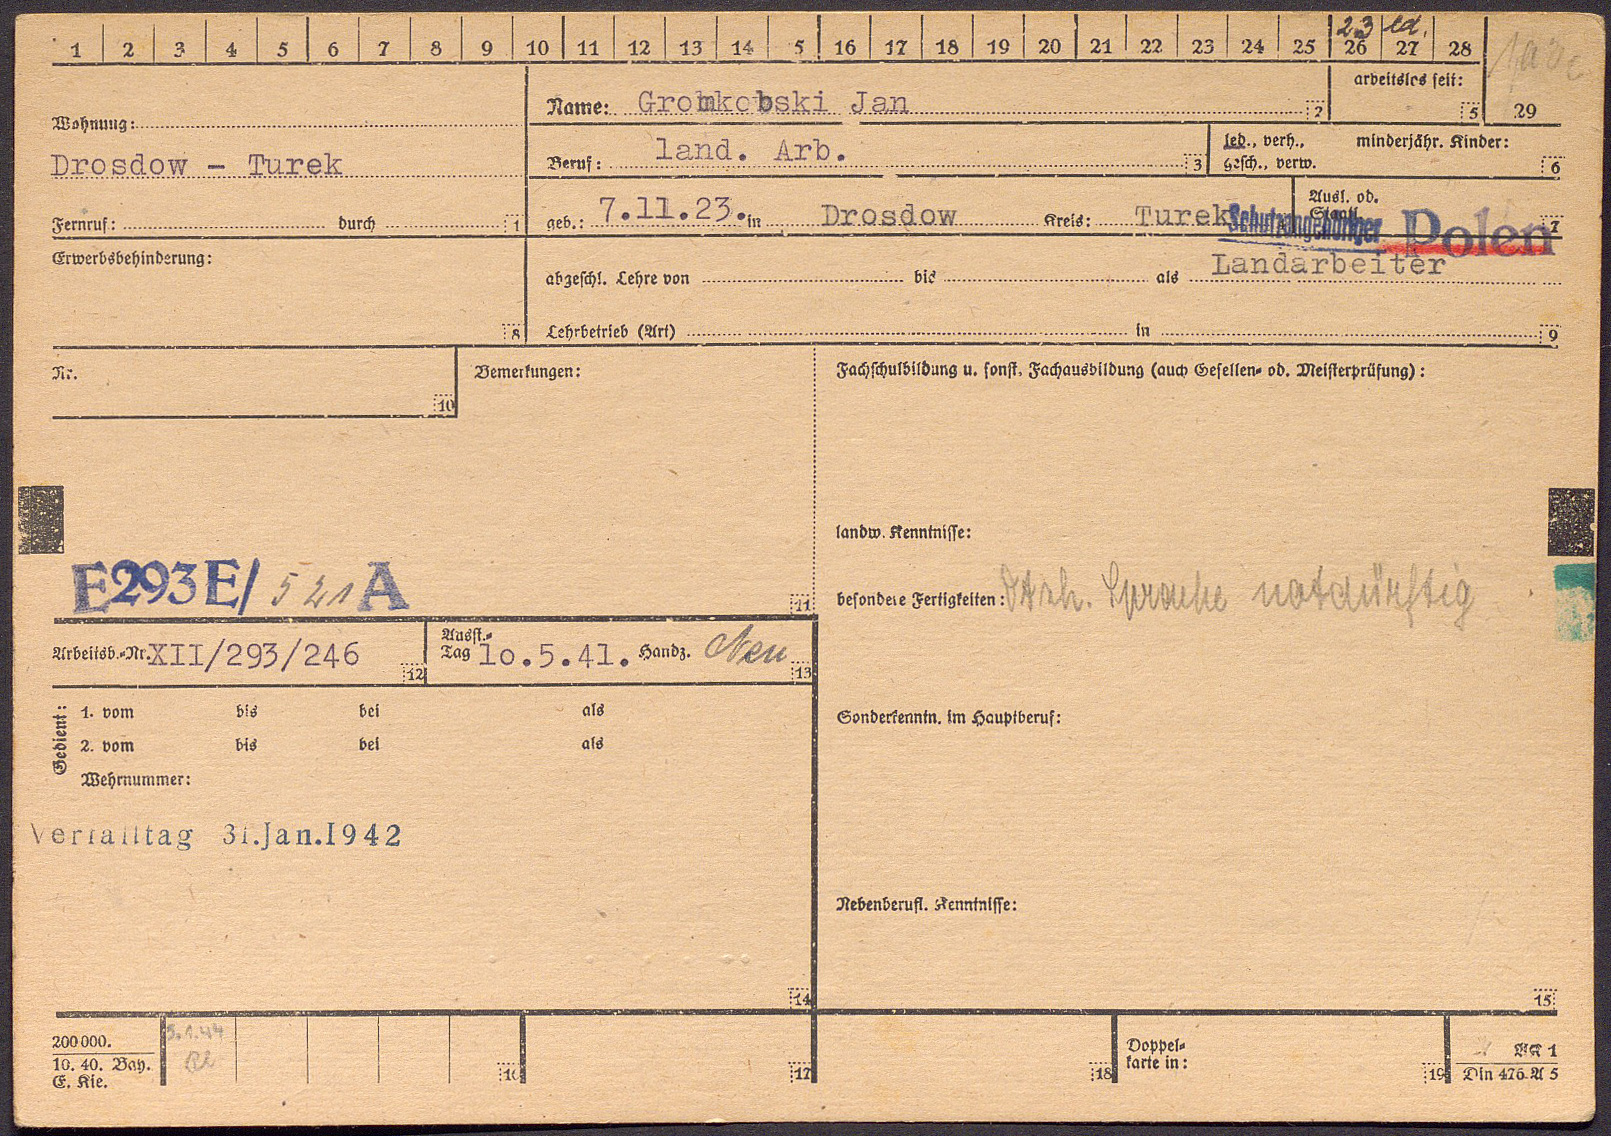 1 2 3 4 5 6 7 8 9 10 11 12 13 14 5 16 17 18 19 20 21 22 23 24 25 26 27 28
23 led.
arbeitslos seit:
5
29
Wohnung:
Drosdow - Turek
Name: Gromkowski Jan
2
Beruf: land. Arb.
3
led., verh., gesch., verw.
minderjähr. Kinder:
6
Fernruf: durch 1
geb.: 7.11.23. in Drosdow Kreis: Turek
Ausl. od. Staatl.
Schutzangehöriger Polen
7
Erwerbsbehinderung:
8
abgeschl. Lehre von bis als Landarbeiter
Lehrbetrieb (Art) in 9
Nr.
10
Bemerkungen:
Fachschulbildung u. sonst. Fachausbildung (auch Gesellen- od. Meisterprüfung):
landw. Kenntnisse:
E293E/ 521 A
11
besondere Fertigkeiten: Dtsch. Sprache notdürftig
Arbeitsb.-Nr. XII/293/246
12
Ausst.-Tag 10.5.41. Handz. Neu
13
Gedient:
1. vom bis bei als
2. vom bis bei als
Wehrnummer:
Sonderkenntn. im Hauptberuf:
Verfalltag 31.Jan.1942
Nebenberufl. Kenntnisse:
14
15
200000.
10. 40. Bay.
E. Kie.
3.1.44
16
17
18
Doppel-
karte in:
19
AK 1
Din 476 A 5